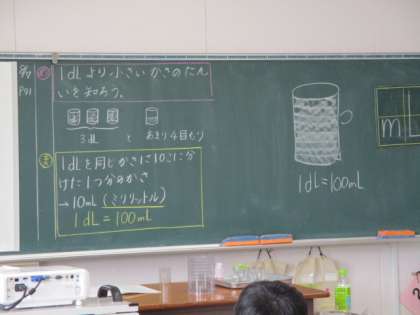 め
1dLより小さいかさのたん
いを知ろう。
3dL と あまり4目もり
1dLを同じかさに10こに分
けた1つ分のかさ
→10mL(ミリリットル)
1dL=100mL
1dL=100mL
mL